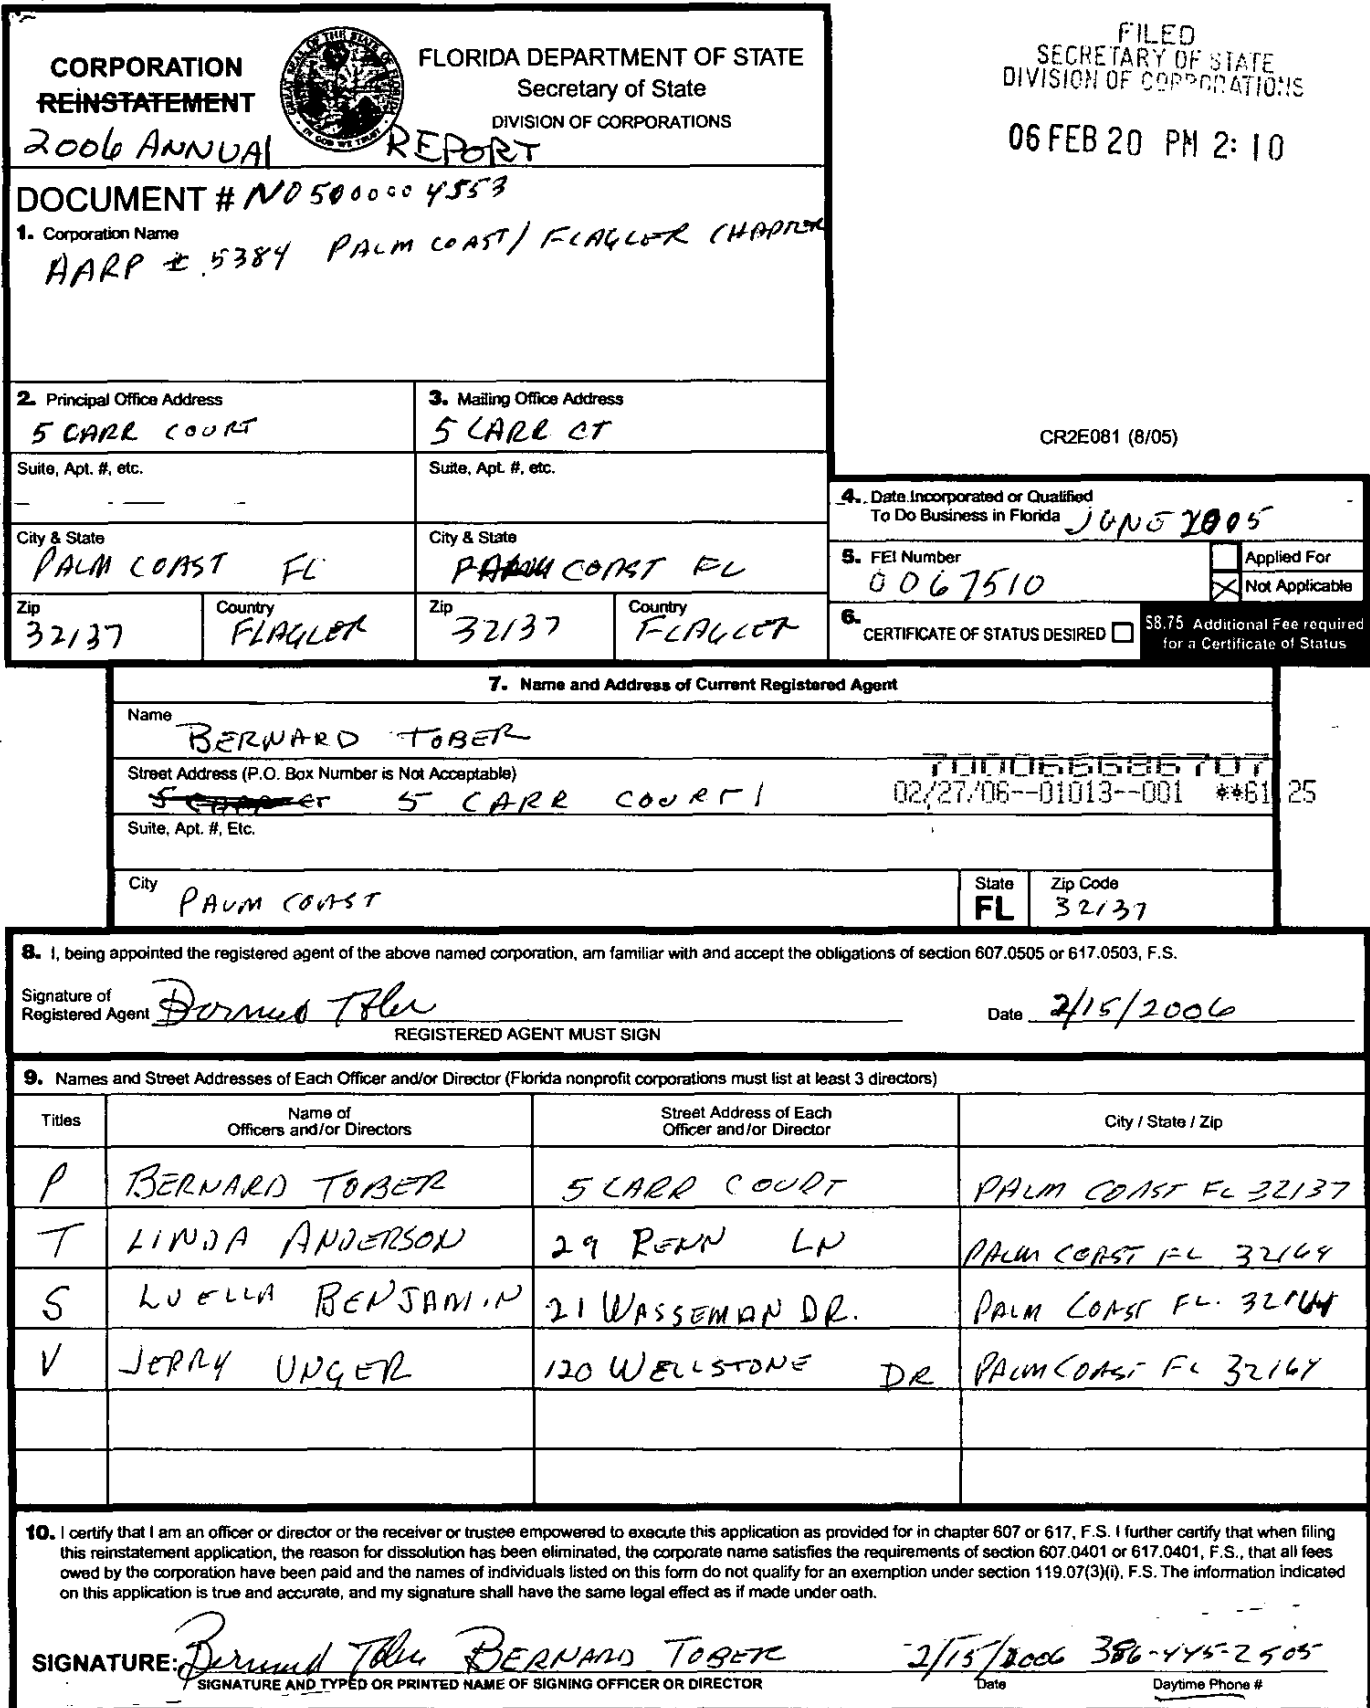 CORPORATION
REINSTATEMENT
2006 ANNUAL REPORT
FLORIDA DEPARTMENT OF STATE
Secretary of State
DIVISION OF CORPORATIONS
FILED
SECRETARY OF STATE
DIVISION OF CORPORATIONS
06 FEB 20 PM 2:10
DOCUMENT # N05000004553
1. Corporation Name
AARP # 5384 PALM COAST/FLAGLER CHAPTER
2. Principal Office Address
5 CARR COURT
3. Mailing Office Address
5 CARR CT
CR2E081 (8/05)
Suite, Apt. #, etc.
Suite, Apt. #, etc.
City & State
PALM COAST FL
City & State
PALM COAST FL
Zip
32137
Country
FLAGLER
Zip
32137
Country
FLAGLER
4. Date Incorporated or Qualified
To Do Business in Florida JUNE 2005
5. FEI Number
0067510
Applied For
Not Applicable
6. CERTIFICATE OF STATUS DESIRED
$8.75 Additional Fee required
for a Certificate of Status
7. Name and Address of Current Registered Agent
Name
BERNARD TOBER
Street Address (P.O. Box Number is Not Acceptable)
5 CARR COURT
700066686707
02/27/06--01013--001 **61.25
Suite, Apt. #, Etc.
City
PALM COAST
State
FL
Zip Code
32137
8. I, being appointed the registered agent of the above named corporation, am familiar with and accept the obligations of section 607.0505 or 617.0503, F.S.
Signature of
Registered Agent Bernard Tober
Date 2/15/2006
REGISTERED AGENT MUST SIGN
9. Names and Street Addresses of Each Officer and/or Director (Florida nonprofit corporations must list at least 3 directors)
Titles
Name of
Officers and/or Directors
Street Address of Each
Officer and/or Director
City / State / Zip
P BERNARD TOBER 5 CARR COURT PALM COAST FL 32137
T LINDA ANDERSON 29 RENN LN PALM COAST FL 32164
S LUELLA BENJAMIN 21 WASSEMAN DR. PALM COAST FL. 32164
V JERRY UNGER 120 WELLSTONE DR PALM COAST FL 32164
10. I certify that I am an officer or director or the receiver or trustee empowered to execute this application as provided for in chapter 607 or 617, F.S. I further certify that when filing
this reinstatement application, the reason for dissolution has been eliminated, the corporate name satisfies the requirements of section 607.0401 or 617.0401, F.S., that all fees
owed by the corporation have been paid and the names of individuals listed on this form do not qualify for an exemption under section 119.07(3)(i), F.S. The information indicated
on this application is true and accurate, and my signature shall have the same legal effect as if made under oath.
SIGNATURE: Bernard Tober BERNARD TOBER 2/15/2006 386-445-2505
SIGNATURE AND TYPED OR PRINTED NAME OF SIGNING OFFICER OR DIRECTOR
Date
Daytime Phone #